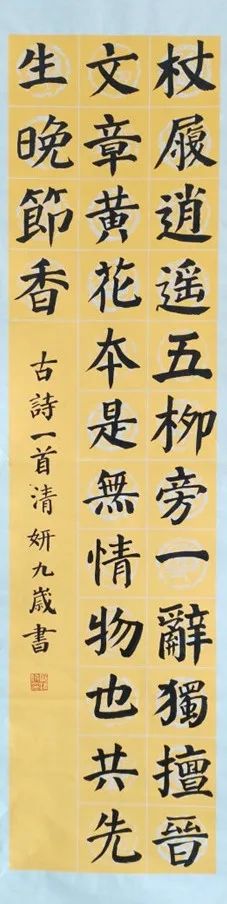 杖履逍遥五柳旁一辭獨擅晉
文章黄花本是無情物也共先
生晚節香
古詩一首清妍九歲書